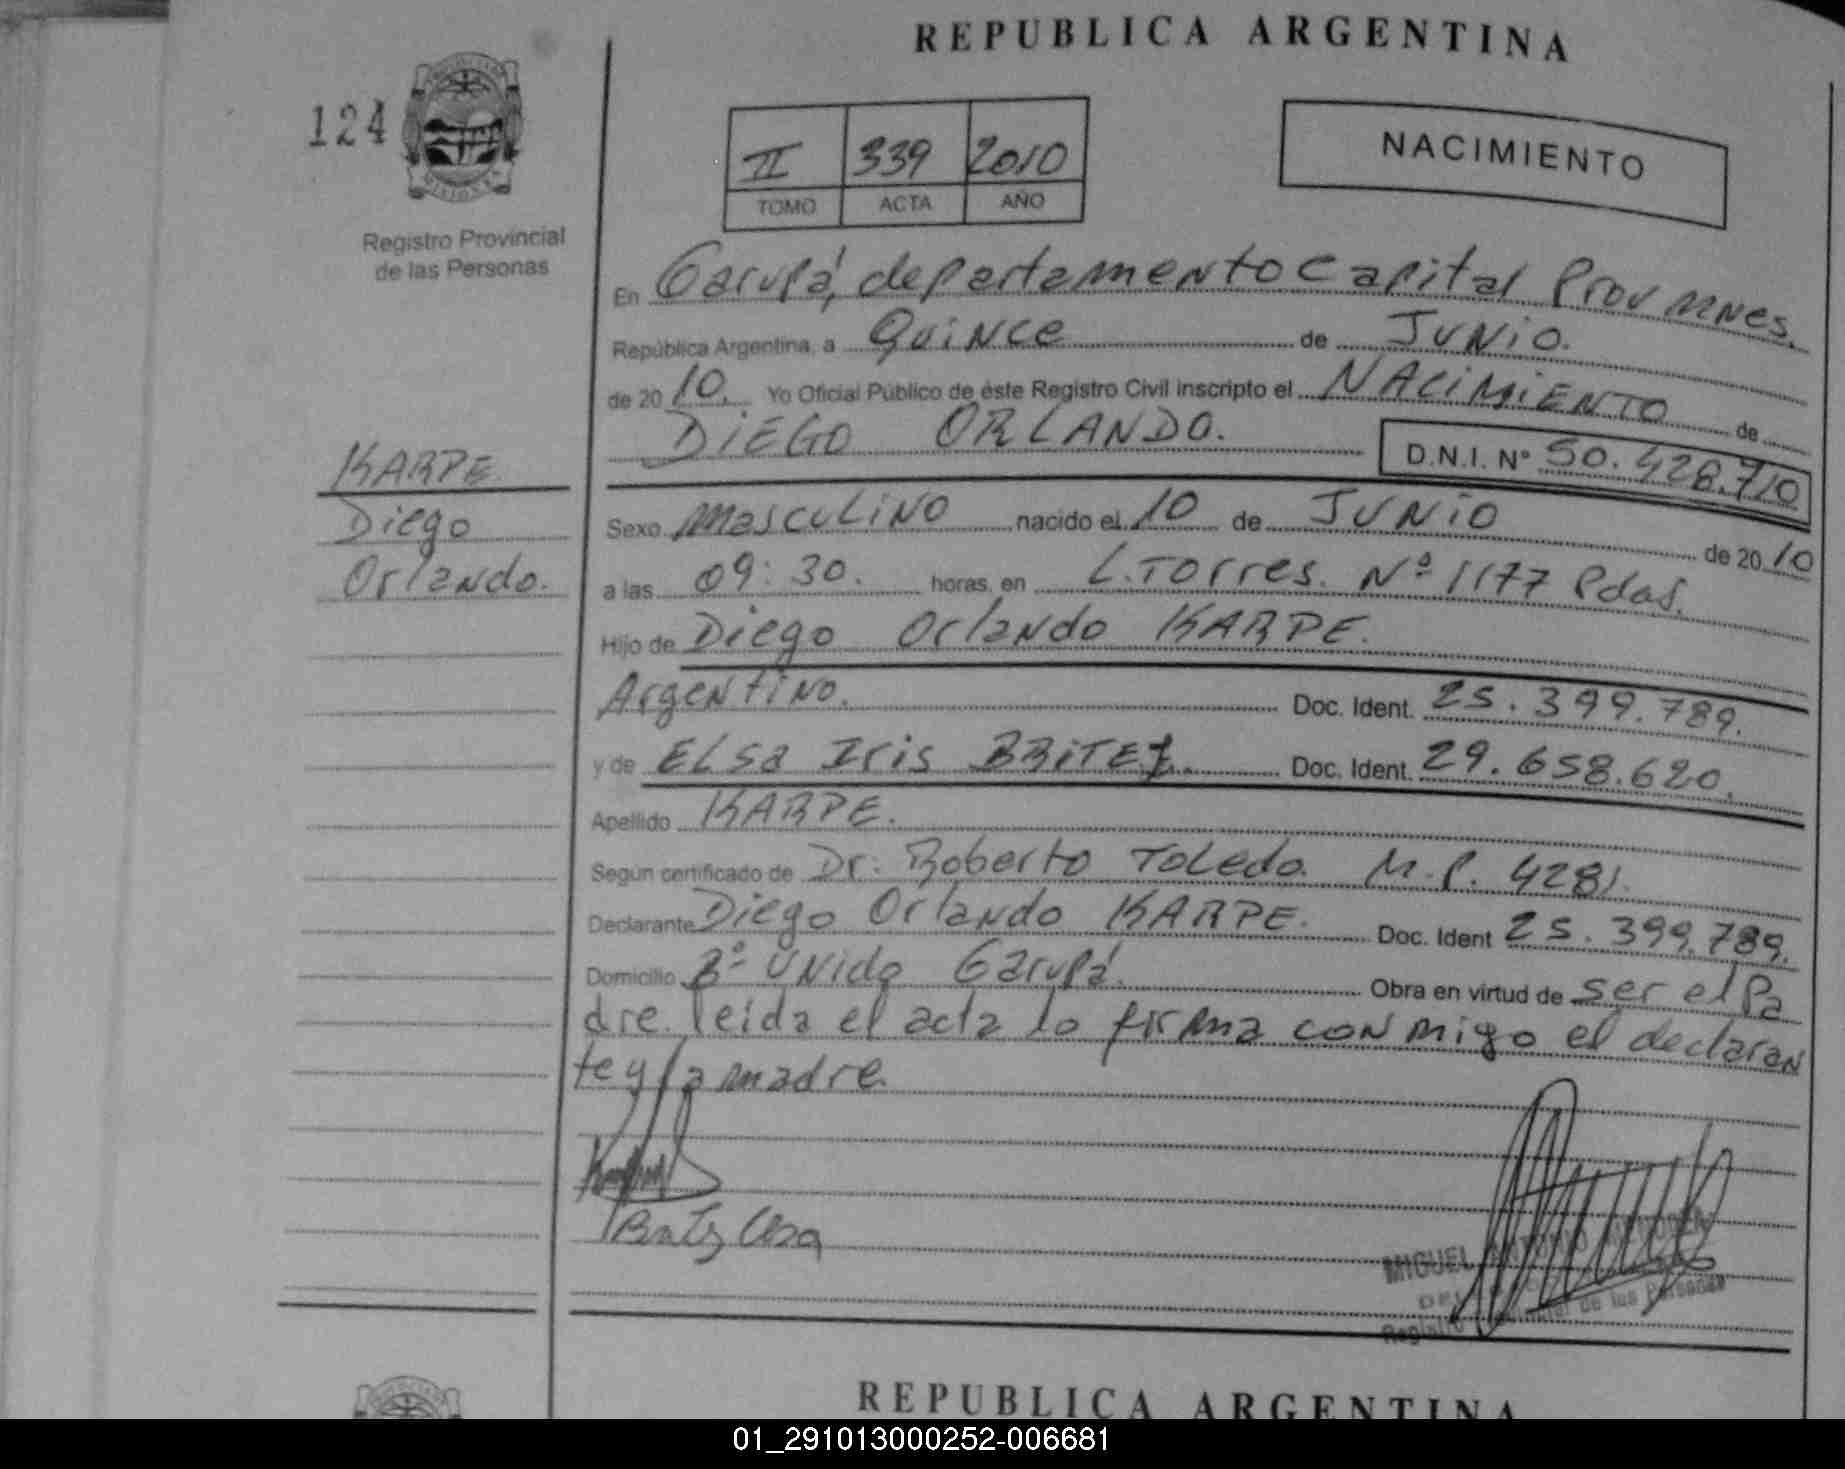 REPUBLICA ARGENTINA
124
Registro Provincial
de las Personas
II 339 2010
TOMO ACTA AÑO
NACIMIENTO
En Garupá, departamento Capital Prov Mnes.
República Argentina, a Quince de Junio.
de 2010. Yo Oficial Público de éste Registro Civil inscripto el NACIMIENTO de
DIEGO ORLANDO. D.N.I. Nº 50.428.710
KARPE
Diego
Orlando.
Sexo Masculino nacido el 10 de JUNIO de 2010
a las 09:30. horas, en L. Torres. Nº 1177 Pdas.
Hijo de Diego Orlando KARPE.
Argentino. Doc. Ident. 25.399.789.
y de Elsa Iris BRITEZ. Doc. Ident. 29.658.620.
Apellido KARPE.
Según certificado de Dr. Roberto Toledo. M.P. 4281.
Declarante Diego Orlando KARPE. Doc. Ident 25.399.789.
Domicilio Bº Unido Garupá. Obra en virtud de ser el Pa
dre. leida el acta lo firma conmigo el declaran
te y la madre.
MIGUEL ANTONIO
Registro Provincial de las Personas
REPUBLICA ARGENTINA
01_291013000252-006681